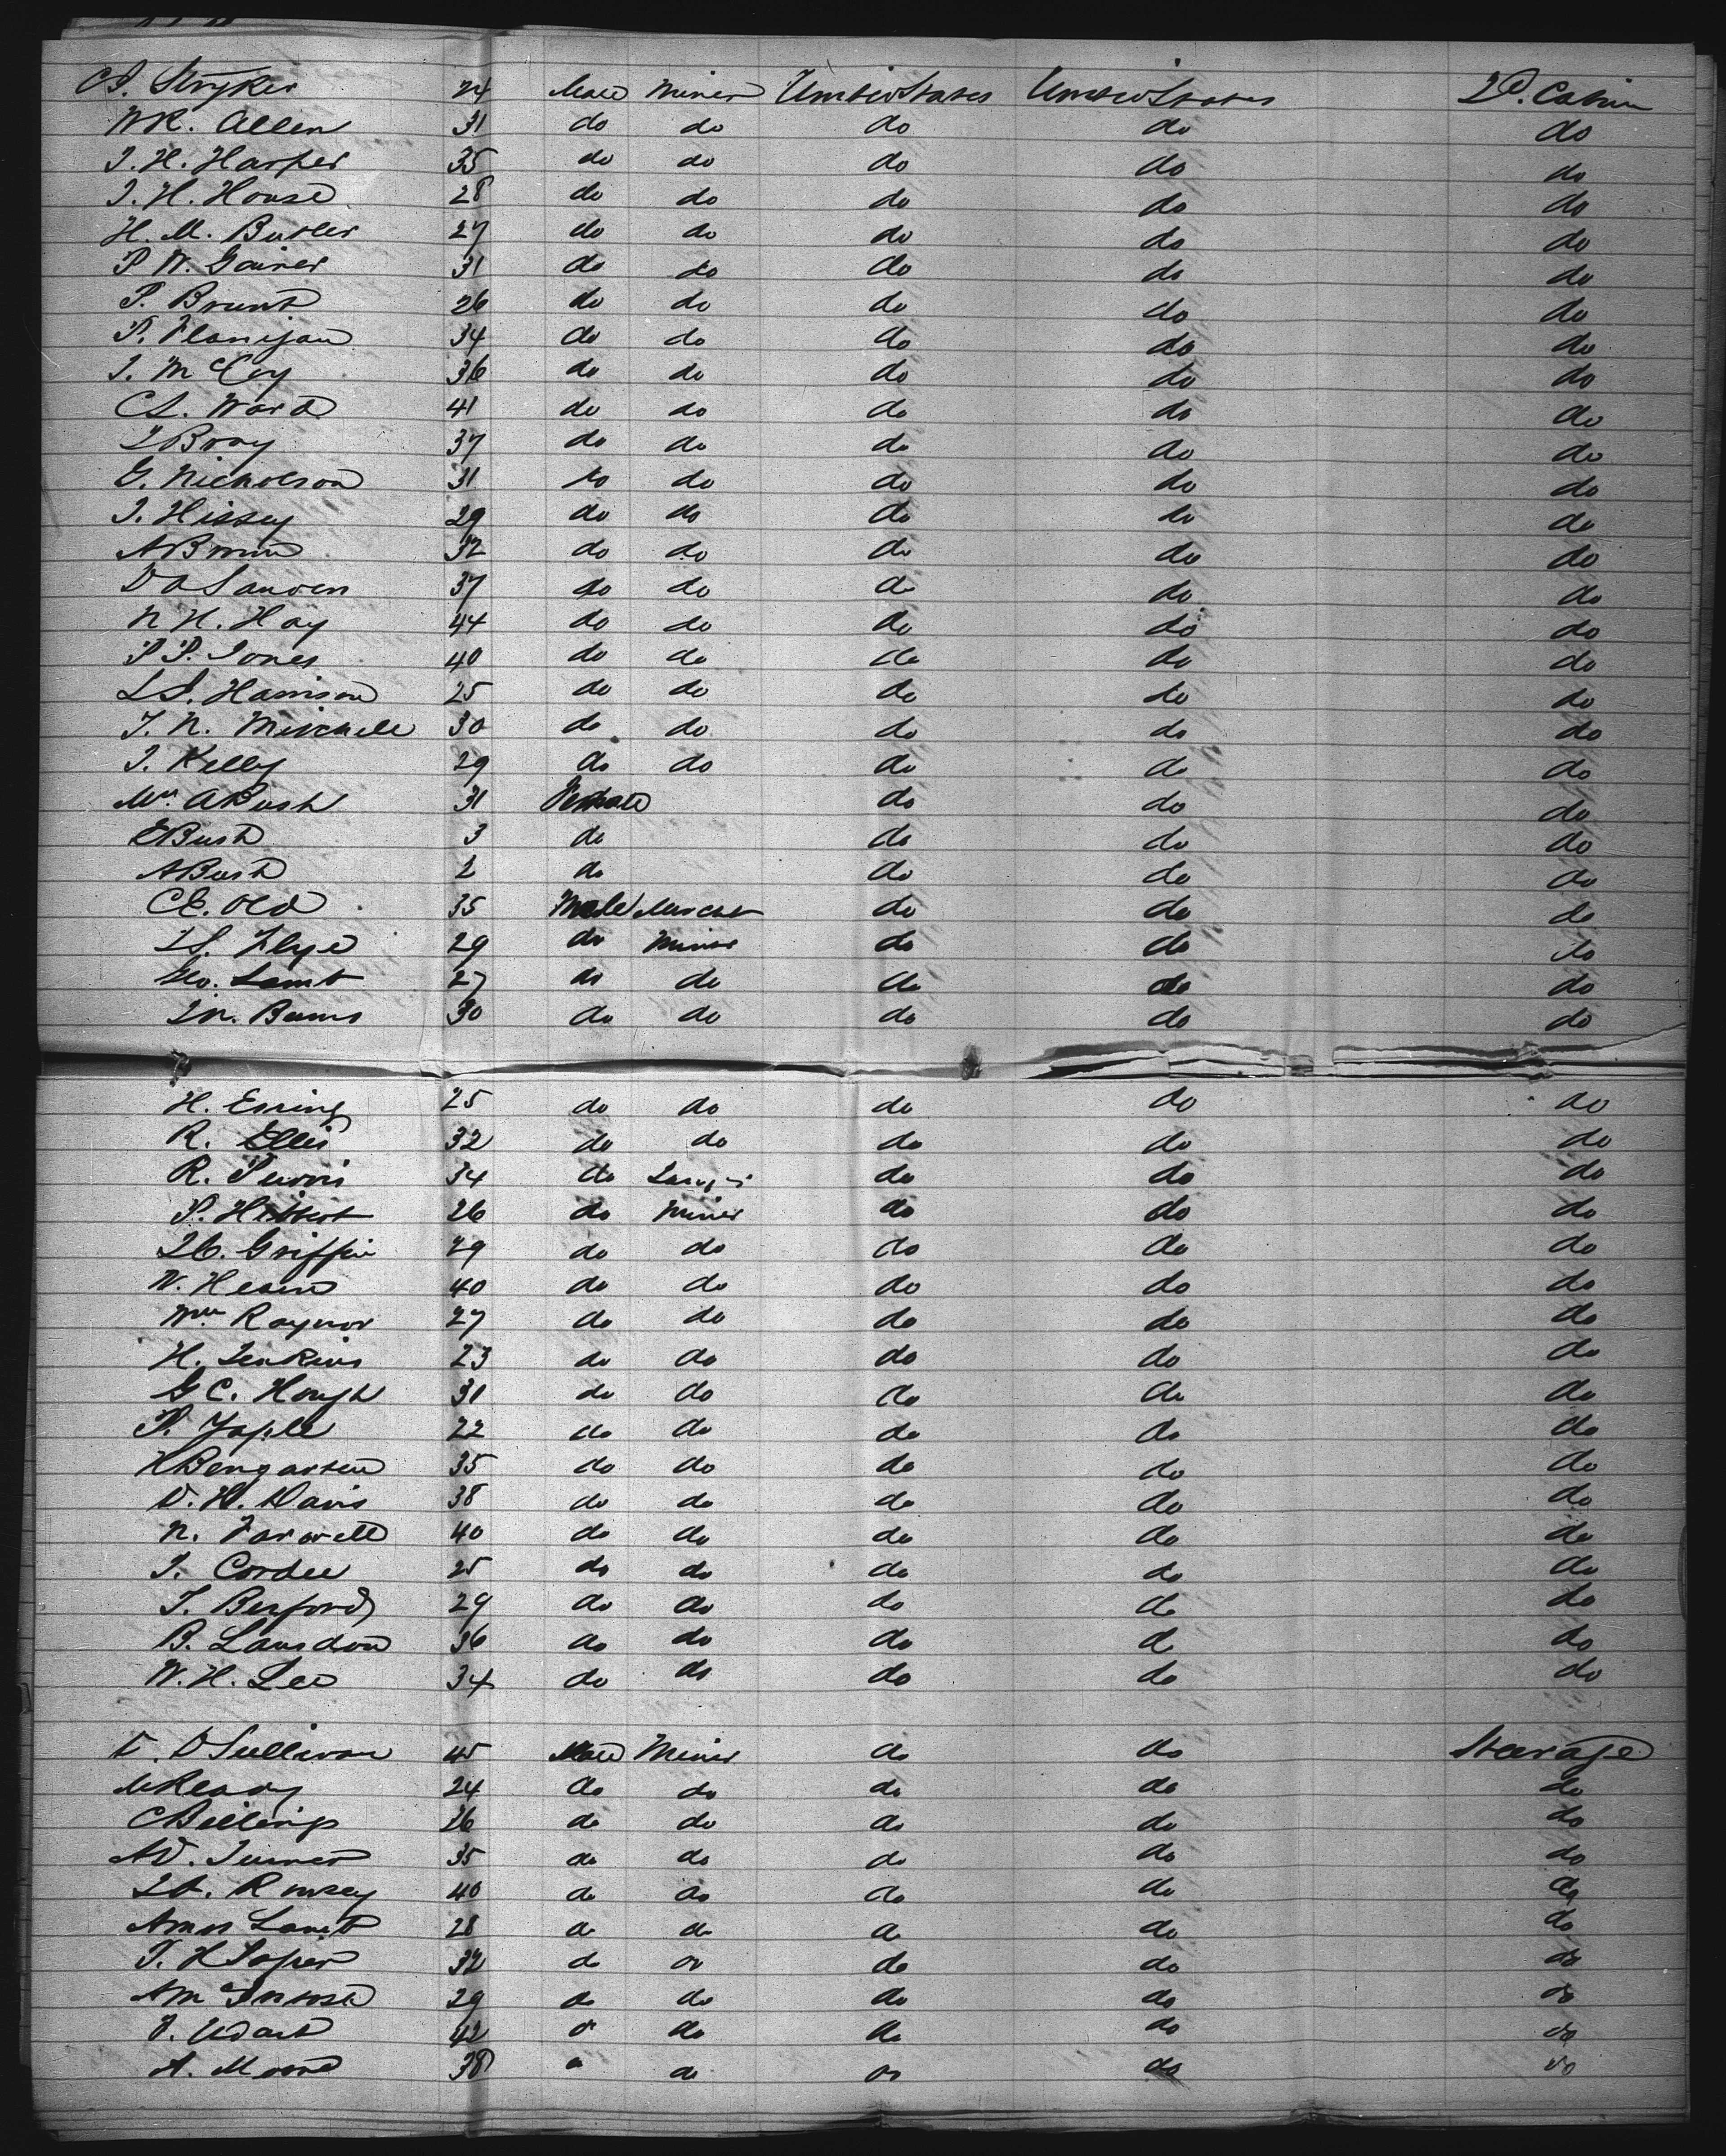 C.S. Stryker 24 Male Miner United States United States 2d. Cabin
W.R. Allen 31 do do do do do
J. H. Harper 35 do do do do do
J. H. House 28 do do do do do
H. M. Butler 27 do do do do do
P. W. Gainer 31 do do do do do
P. Brunt 26 do do do do do
P. Flanijan 34 do do do do do
J. McCoy 36 do do do do do
C L. Ward 41 do do do do do
J Bray 37 do do do do do
G. Nicholson 31 do do do do do
J. Hissey 29 do do do do do
A Brown 32 do do do do do
37 do do do do do
N. H. Hay 44 do do do do do
P. P. Jones 40 do do do do do
L S. Harrison 25 do do do do do
T. N. Mitchell 30 do do do do do
J. Kelly 29 do do do do do
Mrs. A Bush 31 Female do do do
E Bush 3 do do do do
A Bush 2 do do do do
C E. Old 35 Male do do do
29 do Miner do do do
Geo. Lamb 27 do do do do do
30 do do do do do
H. 25 do do do do do
R. Ellis 32 do do do do do
R. 34 do do do do
P. Hibbert 26 do Miner do do do
Griffin 29 do do do do do
W. 40 do do do do do
Wm Raynor 27 do do do do do
H. Jenkins 23 do do do do do
G C. Hough 31 do do do do do
P. Yaple 22 do do do do do
H Bengarten 35 do do do do do
D. H. Davis 38 do do do do do
N. Farwell 40 do do do do do
J. Cordee 25 do do do do do
T. Berford 29 do do do do do
B. Lansdon 36 do do do do do
W. H. Lee 34 do do do do do
D. O Sullivan 45 Male Miner do do Steerage
M Ready 24 do do do do do
C Billings 26 do do do do do
A D. Turner 35 do do do do do
40 do do do do do
Amos Lamb 28 do do do do do
T. H 32 do do do do do
A M 29 do do do do do
42 do do do do do
A. Moore 38 do do do do do